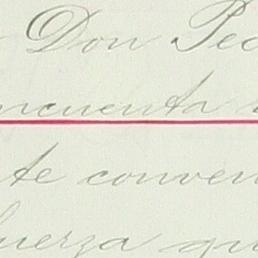 Don Pec
ncuenta
te conven
uerza qu